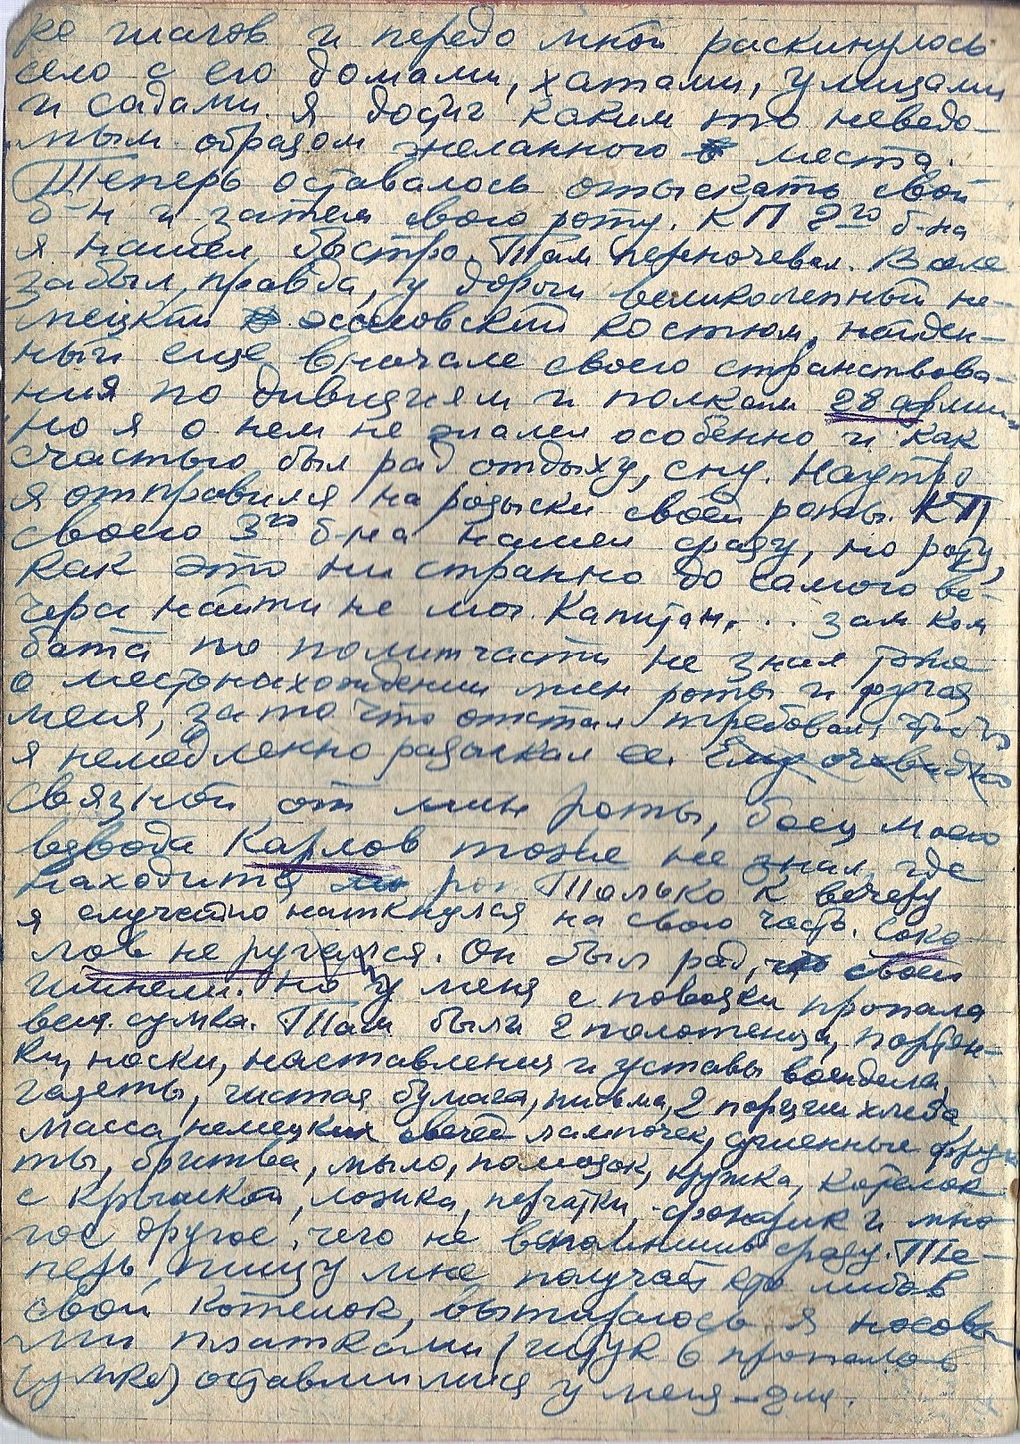 ко шагов и передо мной раскинулось
село с его домами, хатами, улицами
и садами. Я достиг каким то неведо-
мым образом желанного места.
Теперь оставалось отыскать свой
б-н и затем свою роту. КП 2го б-на
я нашел быстро. Там переночевал. В селе
забыл, правда, у дороги великолепный не-
мецкий эсэсовский костюм, найден-
ный еще вначале своего странствова-
ния по дивизиям и полкам 28 армии
но я о нем не жалел особенно и как
счастью был рад отдыху, сну. Наутро
я отправился на розыски своей роты. КП
своего 3го б-на нашел сразу, но роту,
как это ни странно до самого ве-
чера найти не мог. Капитан, . . . зам ком
бата по политчасти не знал тоже
о местонахождении мин роты и ругая
меня, за то что отстал требовал, чтобы
я немедленно разыскал ее. Ему очевидно
связной от мин роты, боец моего
взвода Карлов тоже не знал, где
находится рот Только к вечеру
я случайно наткнулся на свою часть. Соко-
лов не ругался. Он был рад, что своей
шинели. Но у меня с повозки пропала
вещ. сумка. Там были 2 полотенца, портян-
ки, носки, наставления и уставы воендела,
газеты, чистая бумага, письма, 2 порции хлеба,
масса немецких свечей лампочек, сушенные фрук
ты, бритва, мыло, помазок, кружка, котелок
с крышкой, ложка, перчатки, фонарик и мно-
гое другое, чего не вспомнишь сразу. Те-
перь, пищу мне получает кто либо в
свой котелок, вытираюсь я носовы
ми платками (штук 6 пропало в
сумке) оставшимися у меня